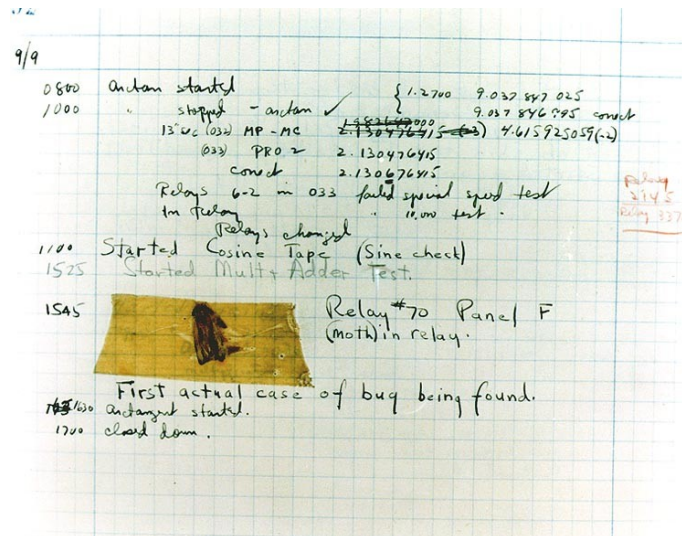 9/9
0800 arctan started { 1.2700 9.037 847 025
1000 " stopped - arctan ✓ 9.037 846 995 correct
13"uc (032) MP - MC 2.130476415 4.615925059(-2)
(033) PRO 2 2.130476415
correct 2.130676415
Relays 6-2 in 033 failed special speed test
in Relay " 10.000 test .
Relay
2145
Relay 337
Relays changed
1100 Started Cosine Tape (Sine check)
1525 Started Mult + Adder Test.
1545 Relay #70 Panel F
(moth) in relay.
First actual case of bug being found.
1630 arctangent started.
1700 closed down.